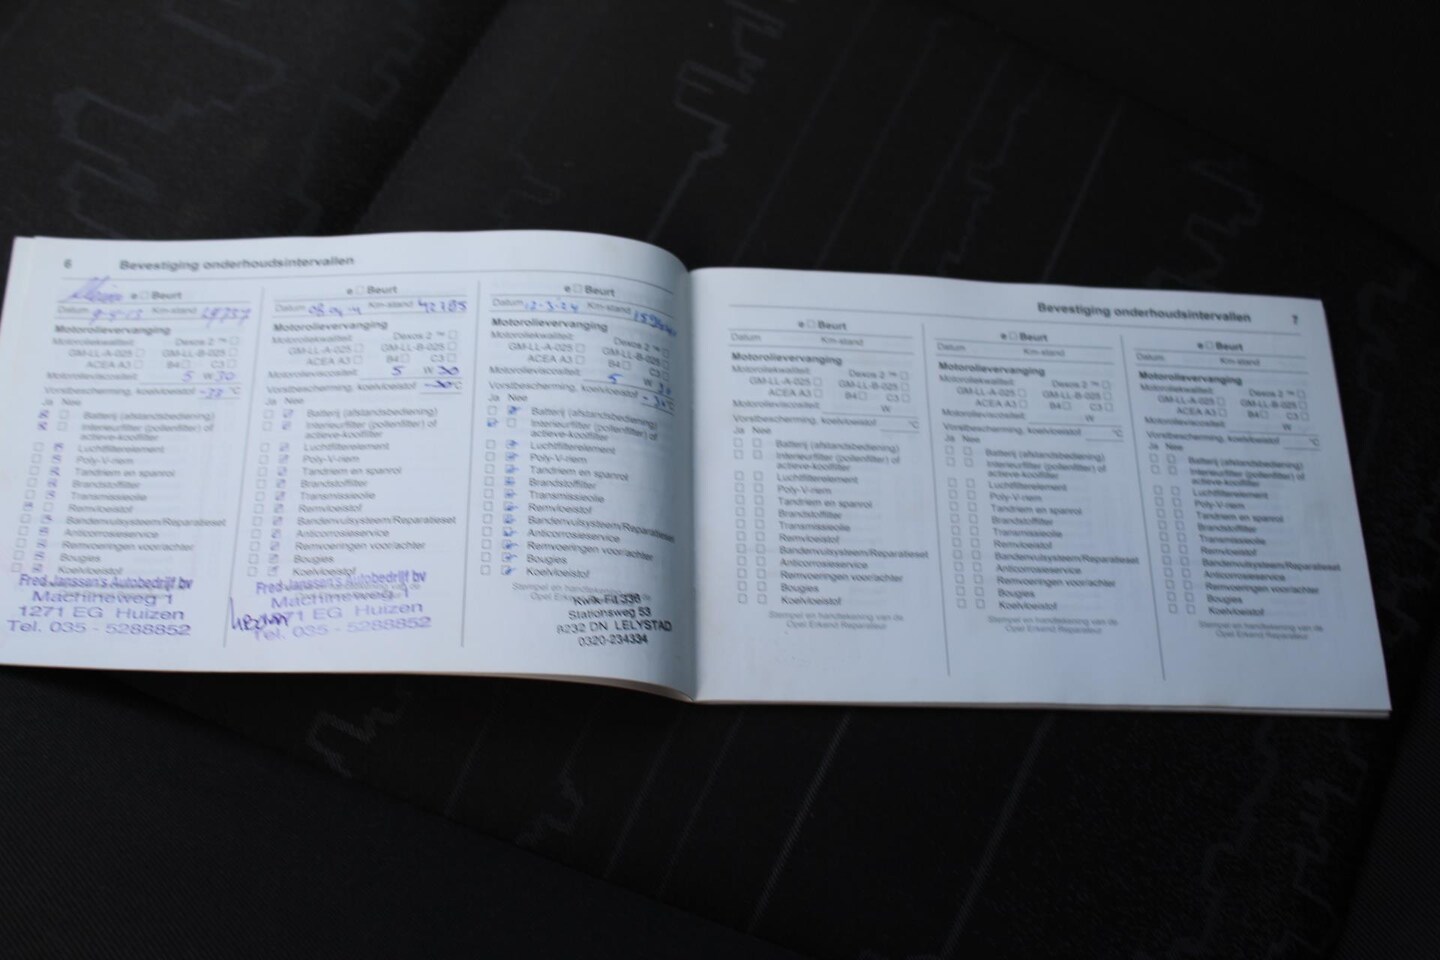 6 Bevestiging onderhoudsintervallen
e ☐ Beurt
Datum 9-5-13 Km-stand
Motorolievervanging
Motoroliekwaliteit: Dexos 2 ™ ☐
GM-LL-A-025 ☐ GM-LL-B-025 ☐
ACEA A3 ☐ B4 ☐ C3 ☐
Motorolieviscositeit: 5 W 30
Vorstbescherming, koelvloeistof °C
Ja Nee
Batterij (afstandsbediening)
Interieurfilter (pollenfilter) of
actieve-koolfilter
Luchtfilterelement
Poly-V-riem
Tandriem en spanrol
Brandstoffilter
Transmissieolie
Remvloeistof
Bandenvulsysteem/Reparatieset
Anticorrosieservice
Remvoeringen voor/achter
Bougies
Koelvloeistof
Fred Janssen's Autobedrijf bv
Machineweg 1
1271 EG Huizen
Tel. 035 - 5288852
e ☐ Beurt
Datum Km-stand 42785
Motorolievervanging
Motoroliekwaliteit: Dexos 2 ™ ☐
GM-LL-A-025 ☐ GM-LL-B-025 ☐
ACEA A3 ☐ B4 ☐ C3 ☐
Motorolieviscositeit: 5 W 30
Vorstbescherming, koelvloeistof -30 °C
Ja Nee
Batterij (afstandsbediening)
Interieurfilter (pollenfilter) of
actieve-koolfilter
Luchtfilterelement
Poly-V-riem
Tandriem en spanrol
Brandstoffilter
Transmissieolie
Remvloeistof
Bandenvulsysteem/Reparatieset
Anticorrosieservice
Remvoeringen voor/achter
Bougies
Koelvloeistof
Fred Janssen's Autobedrijf bv
Machineweg 1
1271 EG Huizen
Tel. 035 - 5288852
e ☐ Beurt
Datum 12-3-24 Km-stand
Motorolievervanging
Motoroliekwaliteit: Dexos 2 ™ ☐
GM-LL-A-025 ☐ GM-LL-B-025 ☐
ACEA A3 ☐ B4 ☐ C3 ☐
Motorolieviscositeit: 5 W 30
Vorstbescherming, koelvloeistof °C
Ja Nee
Batterij (afstandsbediening)
Interieurfilter (pollenfilter) of
actieve-koolfilter
Luchtfilterelement
Poly-V-riem
Tandriem en spanrol
Brandstoffilter
Transmissieolie
Remvloeistof
Bandenvulsysteem/Reparatieset
Anticorrosieservice
Remvoeringen voor/achter
Bougies
Koelvloeistof
Stempel en handtekening van de
Opel Erkend Reparateur
Kwik-Fit 336
Stationsweg 53
8232 DN LELYSTAD
0320-234334
Bevestiging onderhoudsintervallen 7
e ☐ Beurt
Datum Km-stand
Motorolievervanging
Motoroliekwaliteit: Dexos 2 ™ ☐
GM-LL-A-025 ☐ GM-LL-B-025 ☐
ACEA A3 ☐ B4 ☐ C3 ☐
Motorolieviscositeit: W
Vorstbescherming, koelvloeistof °C
Ja Nee
Batterij (afstandsbediening)
Interieurfilter (pollenfilter) of
actieve-koolfilter
Luchtfilterelement
Poly-V-riem
Tandriem en spanrol
Brandstoffilter
Transmissieolie
Remvloeistof
Bandenvulsysteem/Reparatieset
Anticorrosieservice
Remvoeringen voor/achter
Bougies
Koelvloeistof
Stempel en handtekening van de
Opel Erkend Reparateur
e ☐ Beurt
Datum Km-stand
Motorolievervanging
Motoroliekwaliteit: Dexos 2 ™ ☐
GM-LL-A-025 ☐ GM-LL-B-025 ☐
ACEA A3 ☐ B4 ☐ C3 ☐
Motorolieviscositeit: W
Vorstbescherming, koelvloeistof °C
Ja Nee
Batterij (afstandsbediening)
Interieurfilter (pollenfilter) of
actieve-koolfilter
Luchtfilterelement
Poly-V-riem
Tandriem en spanrol
Brandstoffilter
Transmissieolie
Remvloeistof
Bandenvulsysteem/Reparatieset
Anticorrosieservice
Remvoeringen voor/achter
Bougies
Koelvloeistof
Stempel en handtekening van de
Opel Erkend Reparateur
e ☐ Beurt
Datum Km-stand
Motorolievervanging
Motoroliekwaliteit: Dexos 2 ™ ☐
GM-LL-A-025 ☐ GM-LL-B-025 ☐
ACEA A3 ☐ B4 ☐ C3 ☐
Motorolieviscositeit: W
Vorstbescherming, koelvloeistof °C
Ja Nee
Batterij (afstandsbediening)
Interieurfilter (pollenfilter) of
actieve-koolfilter
Luchtfilterelement
Poly-V-riem
Tandriem en spanrol
Brandstoffilter
Transmissieolie
Remvloeistof
Bandenvulsysteem/Reparatieset
Anticorrosieservice
Remvoeringen voor/achter
Bougies
Koelvloeistof
Stempel en handtekening van de
Opel Erkend Reparateur